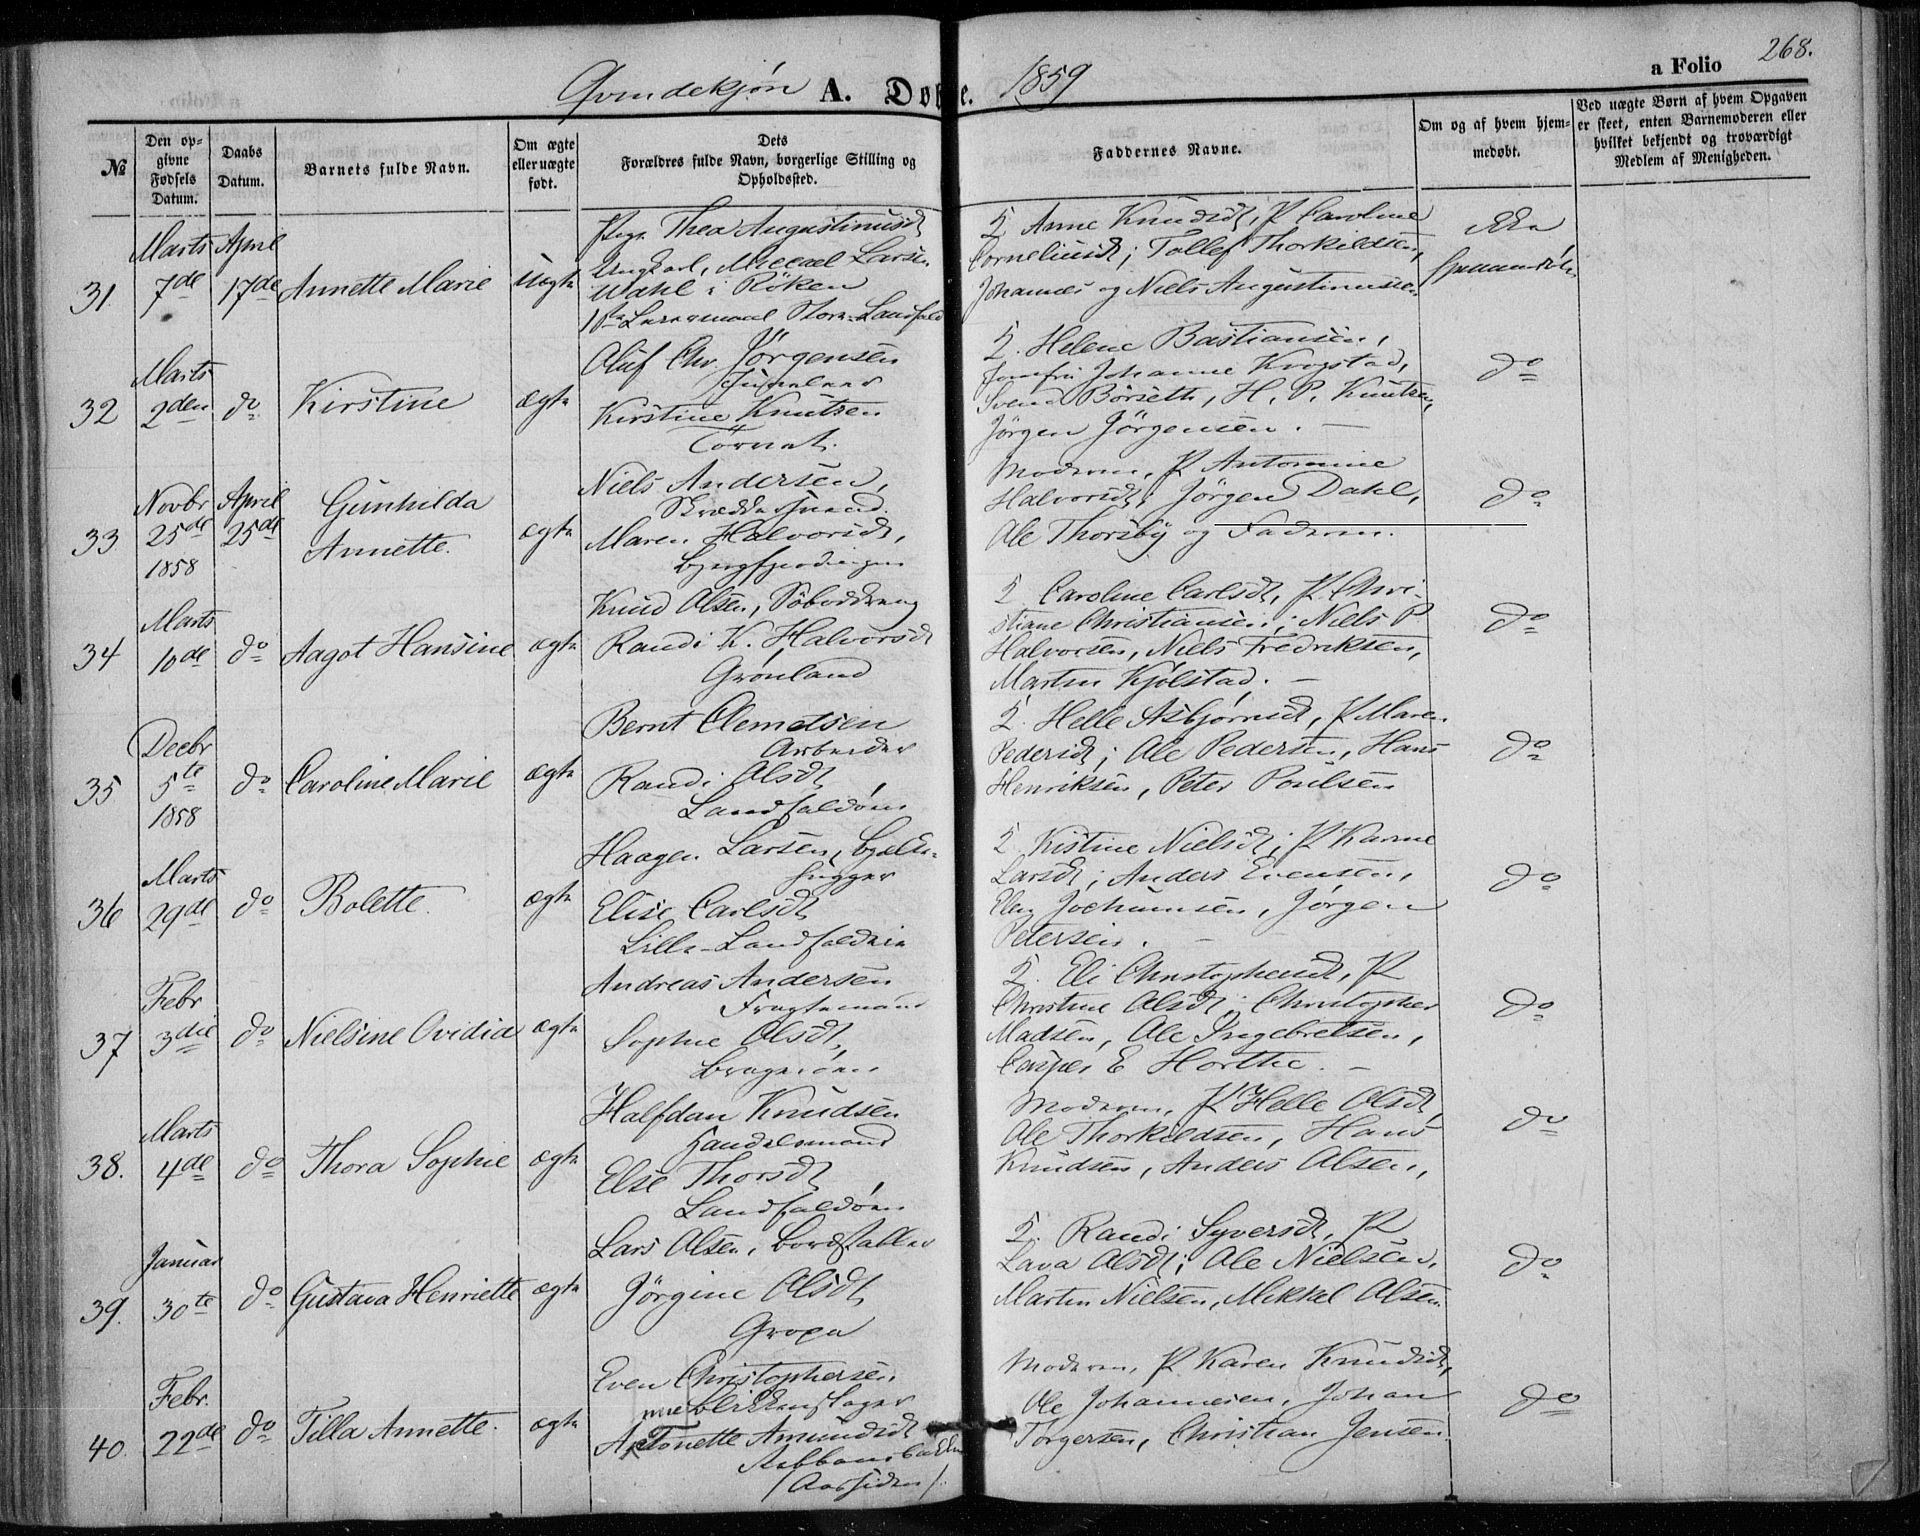 Qvindekjøn A. Døbte. 1859
a Folio 268.
№
Den opgivne Fødsels Datum.
Daabs Datum.
Barnets fulde Navn.
Om ægte eller uægte født.
Dets Forældres fulde Navn, borgerlige Stilling og Opholdssted.
Faddernes Navne.
Om og af hvem hjemmedøbt.
Ved uægte Børn af hvem Opgaven er skeet, enten Barnemoderen eller hvilket bekjendt og troværdigt Medlem af Menigheden.
31. Marts 7de April 17de Annette Marie Uægte
Pige Thea Augustinusdt
Ungkarl, Mickael Larsen
Wahl i Röken
Store-Landfald
Anne Knudsdt, P Caroline
Corneliusdt; Tollef Thorkildsen,
Johannes og Niels Augustinusen
Ikke
32 Marts 2den do Kirstine ægte
Oluf Chr. Jörgensen
Juveleer
Kirstine Knutsen
Torvet.
Helene Bastiansen,
Jomfru Johanne Krogstad,
Svend Börseth, H. P. Knutsen,
Jörgen Jörgensen. —
do
33 Novbr 25de 1858 April 25de Gunhilda Annette. ægte
Niels Andersen,
Skræddersvend.
Maren Halvorsdt,
Bjergfjerdingen
Moderen, P Antonine
Halvorsdt; Jörgen Dahl,
Ole Thorsby og Faderen.
do
34 Marts 10de do Aagot Hansine ægte
Knud Olsen,
Randi K. Halvorsdt
Grönland
Caroline Carlsdt, P Chri-
stiane Christiansen; Niels P
Halvorsen, Niels Fredriksen,
Martin Kjölstad. —
do
35 Decbr 5te 1858 do Caroline Marie ægte
Bernt Clemetsen
Arbeider
Randi Olsdt,
Landfaldöen
Helle Asbjörnsdt, P Maren
Pedersdt; Ole Pedersen, Hans
Henriksen, Peter Poulsen
do
36 Marts 29de do Bolette. ægte
Haagen Larsen, Bjelke-
hugger
Elise Carlsdt
Lille-Landfaldöen
Kistine Nielsdt; P Karine
Larsdt; Anders Evensen,
Jochumsen, Jörgen
Petersen. —
do
37 Febr 3die do Nielsine Ovidia ægte
Andreas Andersen
Fragtemand
Sophie Olsdt,
Brageröen
Eli Christophersdt, P
Christine Olsdt; Christopher
Madsen, Ole Ingebretsen,
Casper E Horthe. —
do
38. Marts 4de do Thora Sophie ægte
Halfdan Knudsen
Handelsmand
Else Thorsdt,
Landfaldöen
Moderen, P Helle Olsdt,
Ole Thorkildsen, Hans
Knudsen, Anders Olsen,
do
39. Januar 30te do Gustava Henriette ægte
Lars Olsen, Bordstabler
Jörgine Olsdt,
Gropa
Randi Syversdt, P
Lava Olsdt; Ole Nielsen,
Martin Nielsen, Mikkel Olsen
do
40. Febr. 22de do Tilla Annette. ægte
Even Christophersen,
Blikkenslager
Antonette Amundsdt
Moderen, P Karen Knudsdt,
Ole Johannesen, Johan
Torgersen, Christian Jensen.
do